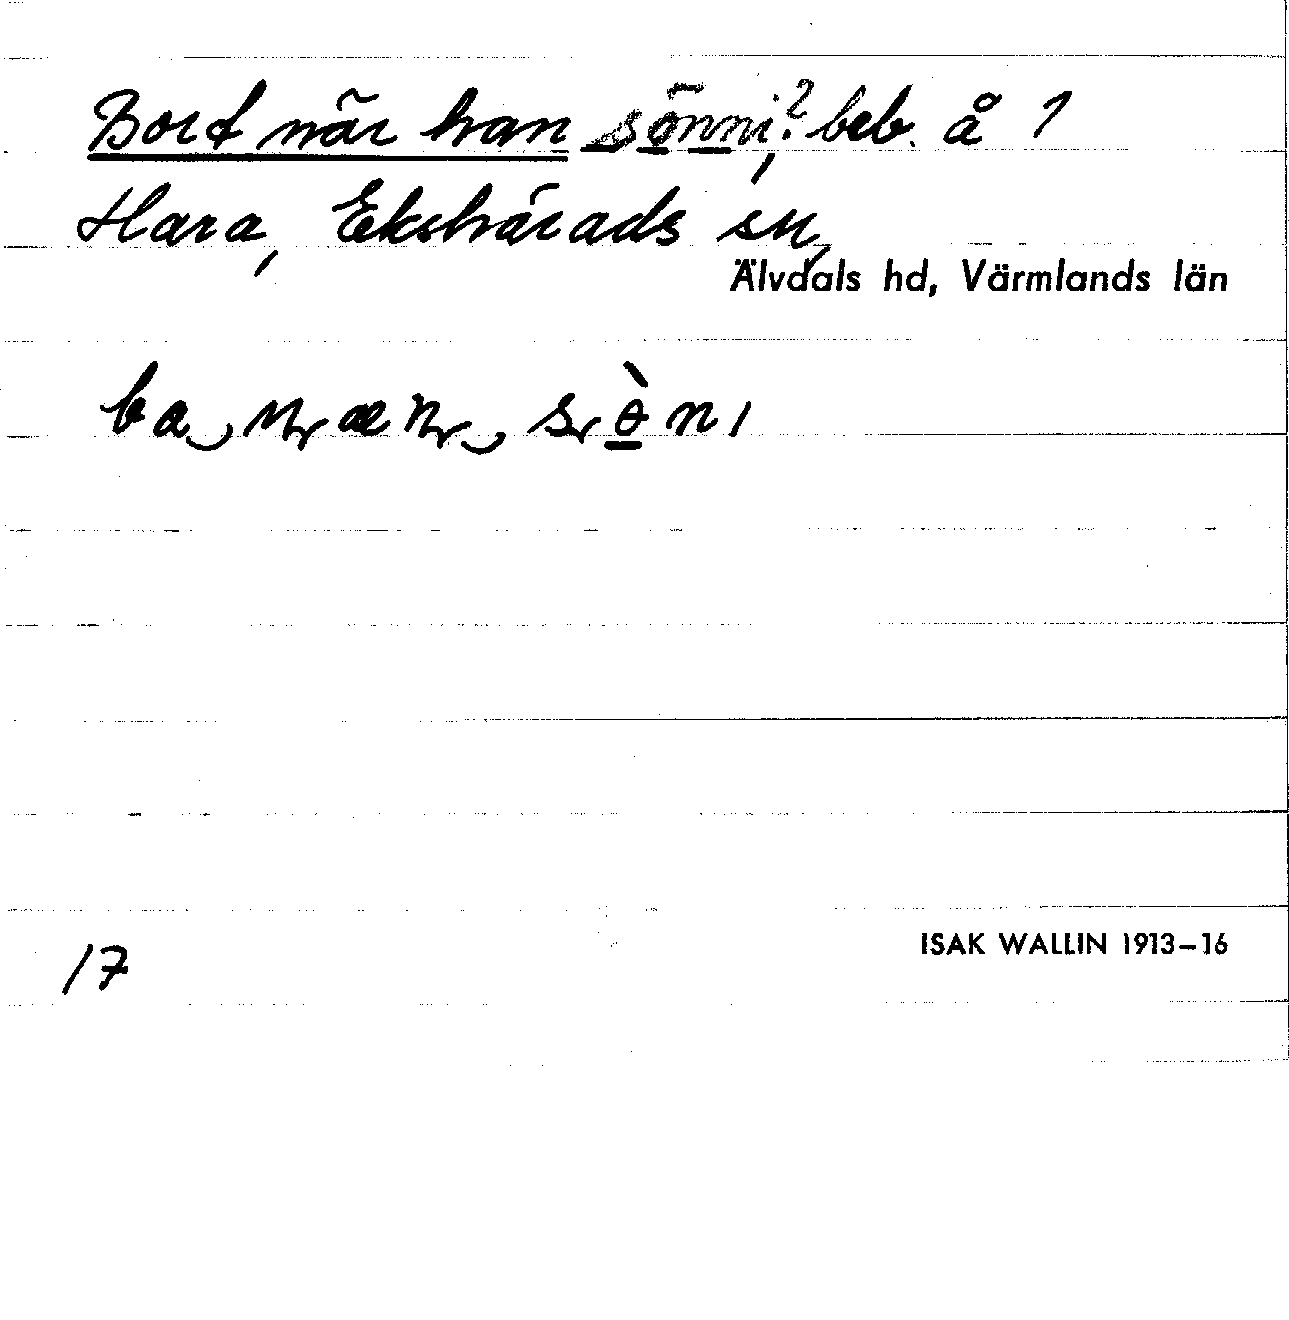 Bort när han sönni,? beb. å 1
Hara, Ekshärads sn,
Älvdals hd, Värmlands län
17
ISAK WALLIN 1913–16